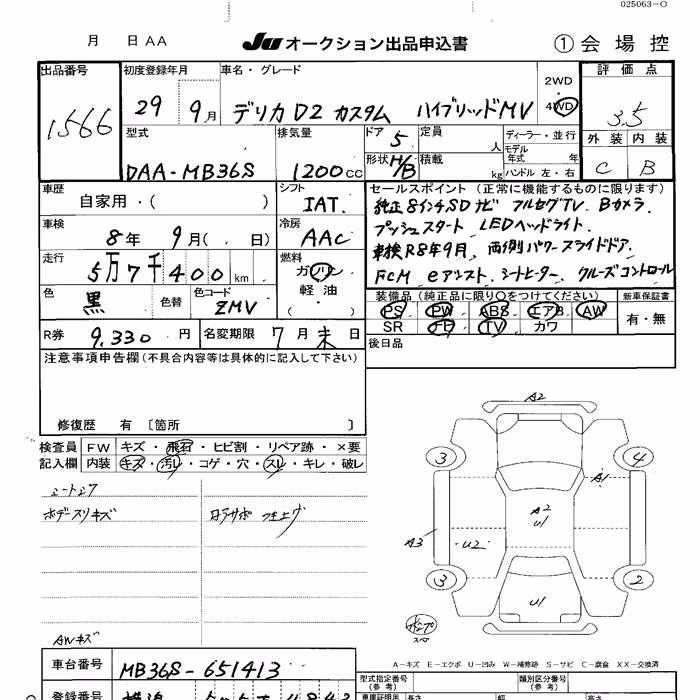 025063-O
月 日 AA JU オークション出品申込書 ① 会場控
出品番号 1566
初度登録年月 29 9月
車名・グレード デリカ D2 カスタム ハイブリッドMV
2WD
4WD
評価点 3.5
外装 内装
C B
型式 DAA-MB36S
排気量 1200cc
ドア 5
形状 H/B
定員 人
積載 kg
ディーラー・並行
モデル年式 年
ハンドル 左・右
車歴 自家用・( )
シフト IAT.
車検 8年 9月( . 日)
冷房 AAC
走行 5万7千400km
燃料 ガソリン
軽・油
( )
色 黒
色替
色コード ZMV
R券 9,330円
名変期限 7月末日
セールスポイント (正常に機能するものに限ります)
純正8インチSDナビ フルセグTV. Bカメラ.
プッシュスタート LEDヘッドライト.
車検R8年9月. 両側パワースライドドア.
FCM eアシスト. シートヒーター. クルーズコントロール
装備品 (純正品に限り○をつけてください)
PS PW ABS エアB AW
SR TV カワ
新車保証書
有・無
後日品
注意事項申告欄(不具合内容等は具体的に記入して下さい)
修復歴 有 〔箇所 〕
検査員記入欄
FW キズ・飛石・ヒビ割・リペア跡・×要
内装 キズ・汚レ・コゲ・穴・スレ・キレ・破レ
ボデースリキズ
AWキズ
A2
3 4
A1
A2
U1
A3 U2
3 2
U1
スペア
A-キズ E-エクボ U-凹み W-補修跡 S-サビ C-腐食 XX-交換済
車台番号 MB36S-651413
型式指定番号(参考)
類別区分番号(参考)
登録番号 横浜
車庫証明用(参考) 長さ 幅 高さ